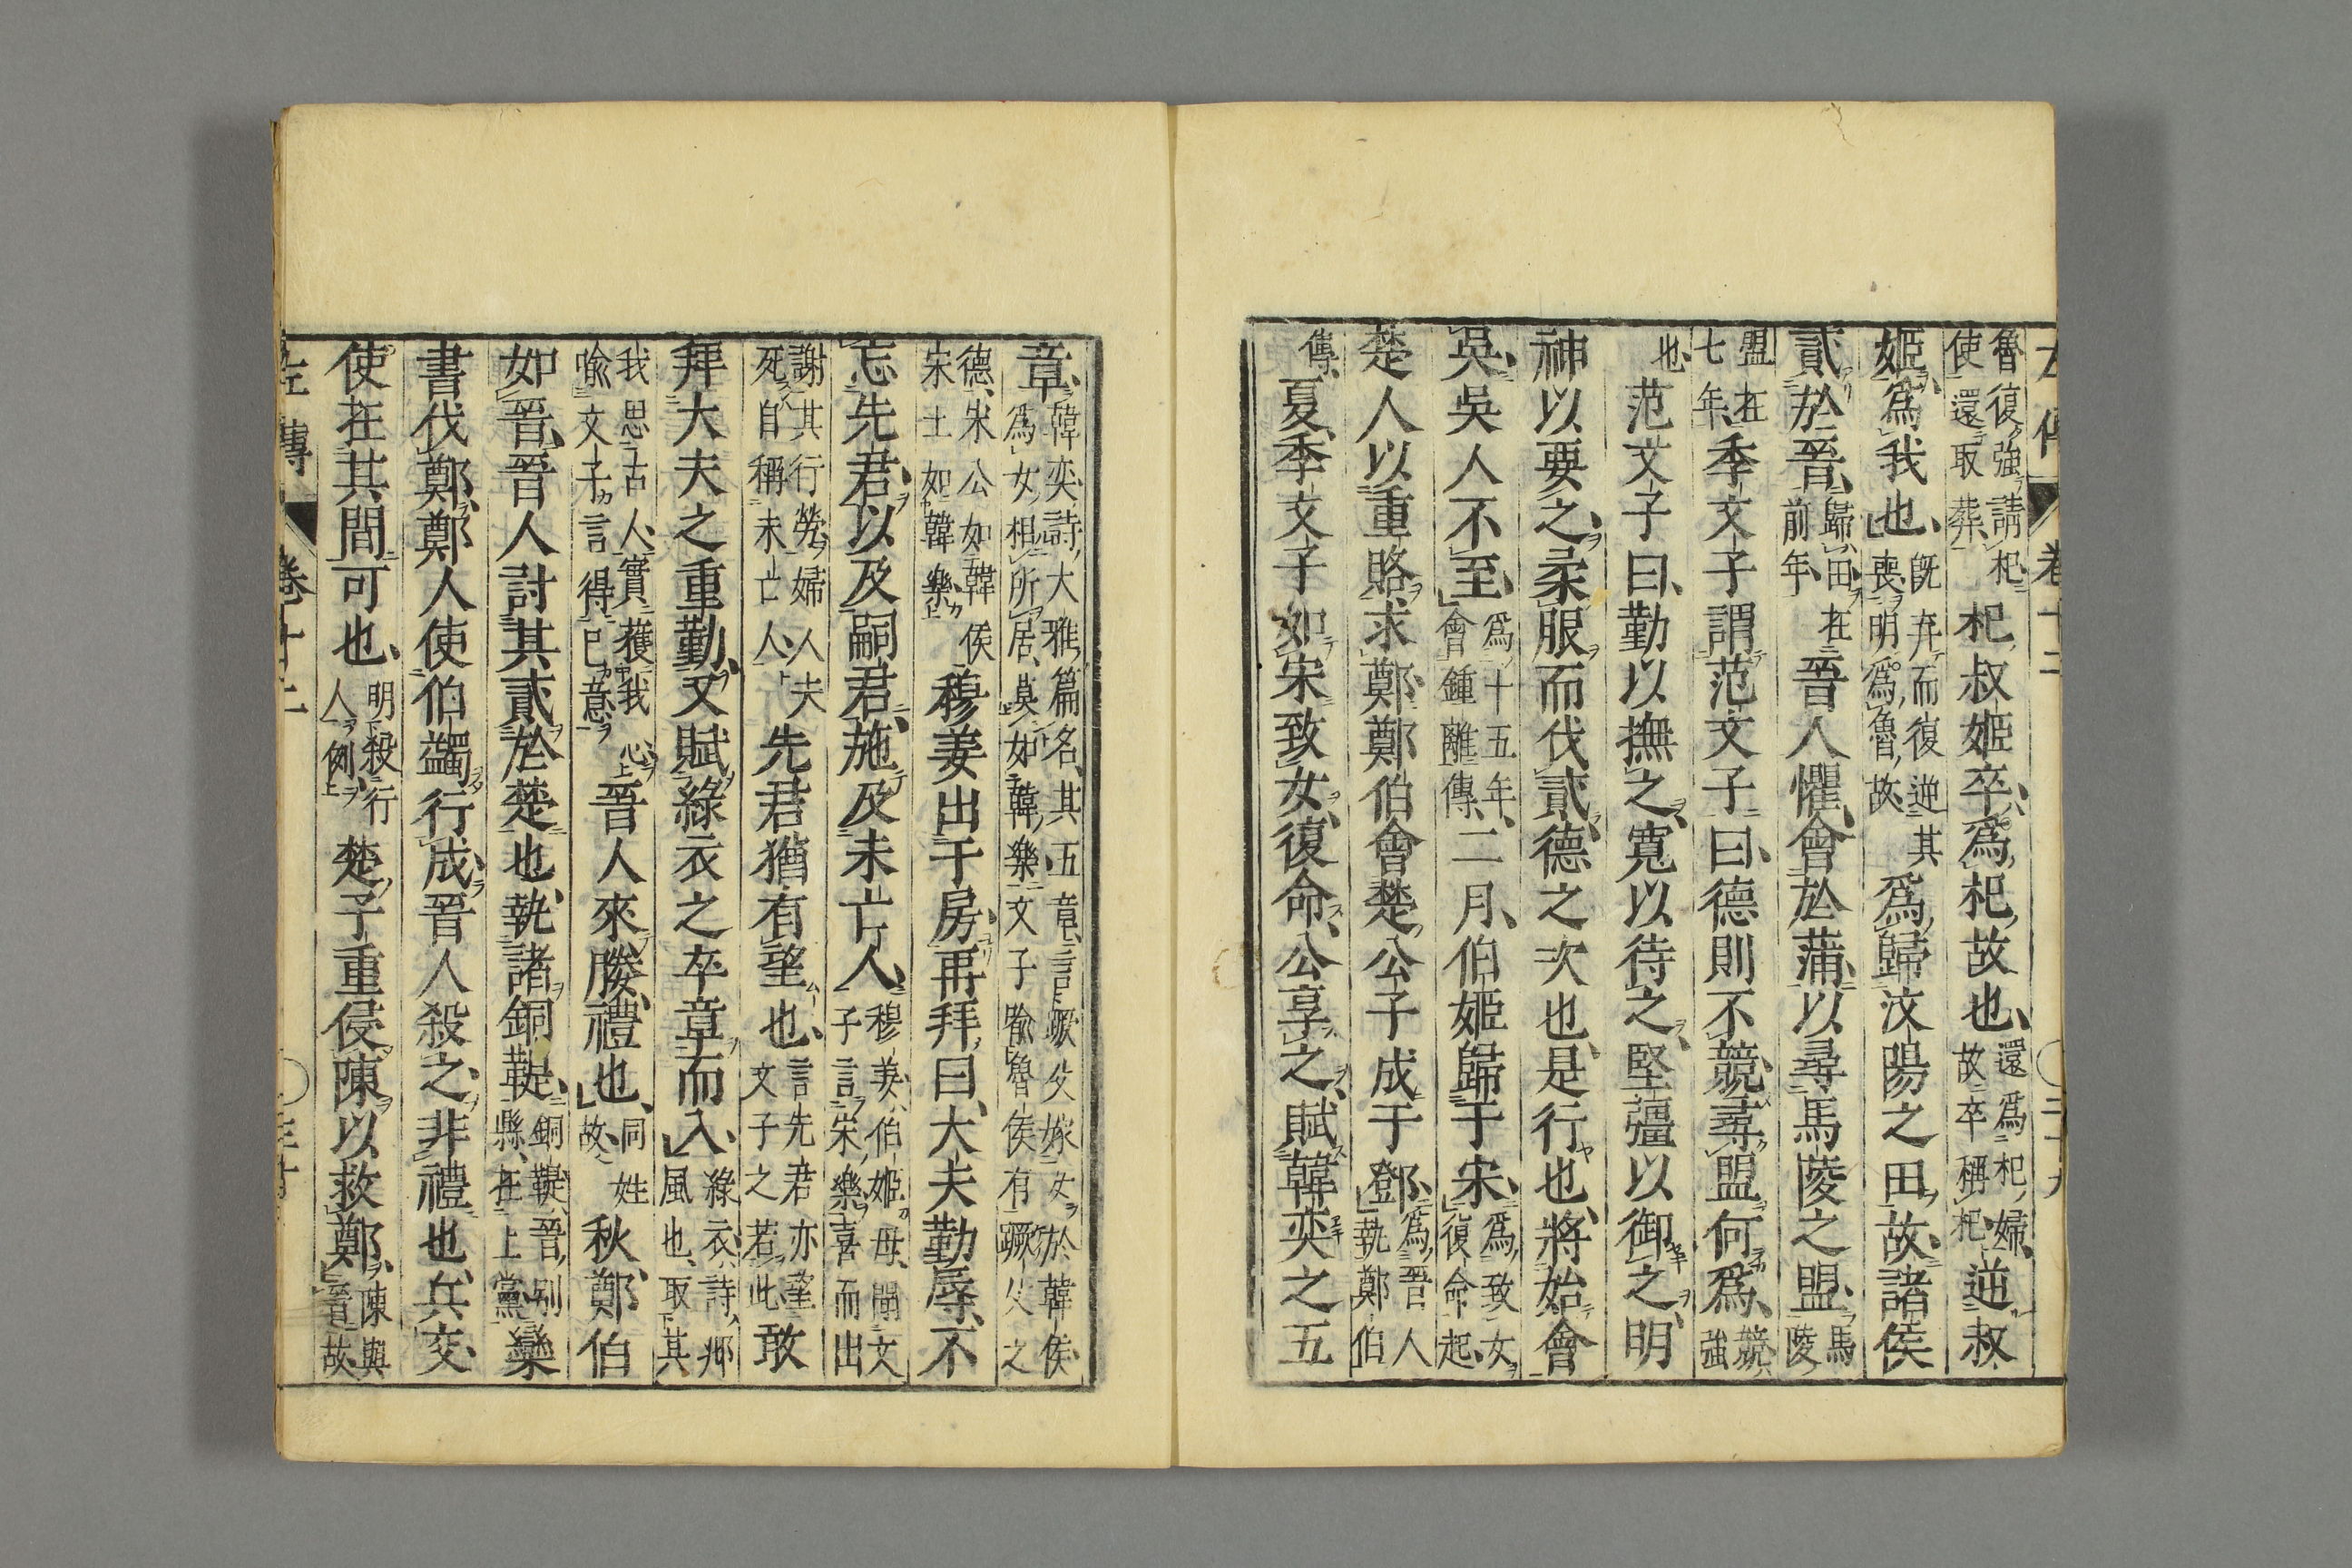 左傳 卷十二 三十九
魯復強請杞使還取葬 杞叔姬卒爲杞故也還爲杞婦故卒稱杞逆叔
姬爲我也旣弃而復逆其喪明爲魯故爲歸汶陽之田故諸侯
貳於晉歸田在前年晉人懼會於蒲以尋馬陵之盟馬陵
盟在七年季文子謂范文子曰德則不競尋盟何爲競強
也范文子曰勤以撫之寬以待之堅彊以御之明
神以要之柔服而伐貳德之次也是行也將始會
吳吳人不至爲十五年會鍾離傳二月伯姬歸于宋爲致女復命起
楚人以重賂求鄭鄭伯會楚公子成于鄧爲晉人執鄭伯
傳夏季文子如宋致女復命公享之賦韓奕之五
章韓奕詩大雅篇名其五章言蹶父嫁女於韓侯爲女相所居莫如韓樂文子喻魯侯有蹶父之
德宋公如韓侯宋土如韓樂穆姜出于房再拜曰大夫勤辱不
忘先君以及嗣君施及未亡人穆姜伯姬母聞文子言宋樂喜而出
謝其行勞婦人夫死自稱未亡人先君猶有望也言先君亦望文子之若此敢
拜大夫之重勤又賦綠衣之卒章而入綠衣詩邶風也取其
我思古人實獲我心喩文子言得己意晉人來媵禮也同姓故秋鄭伯
如晉晉人討其貳於楚也執諸銅鞮銅鞮晉別縣在上黨欒
書伐鄭鄭人使伯蠲行成晉人殺之非禮也兵交
使在其間可也明殺行人例楚子重侵陳以救鄭陳與晉故
左傳 卷十二 三十